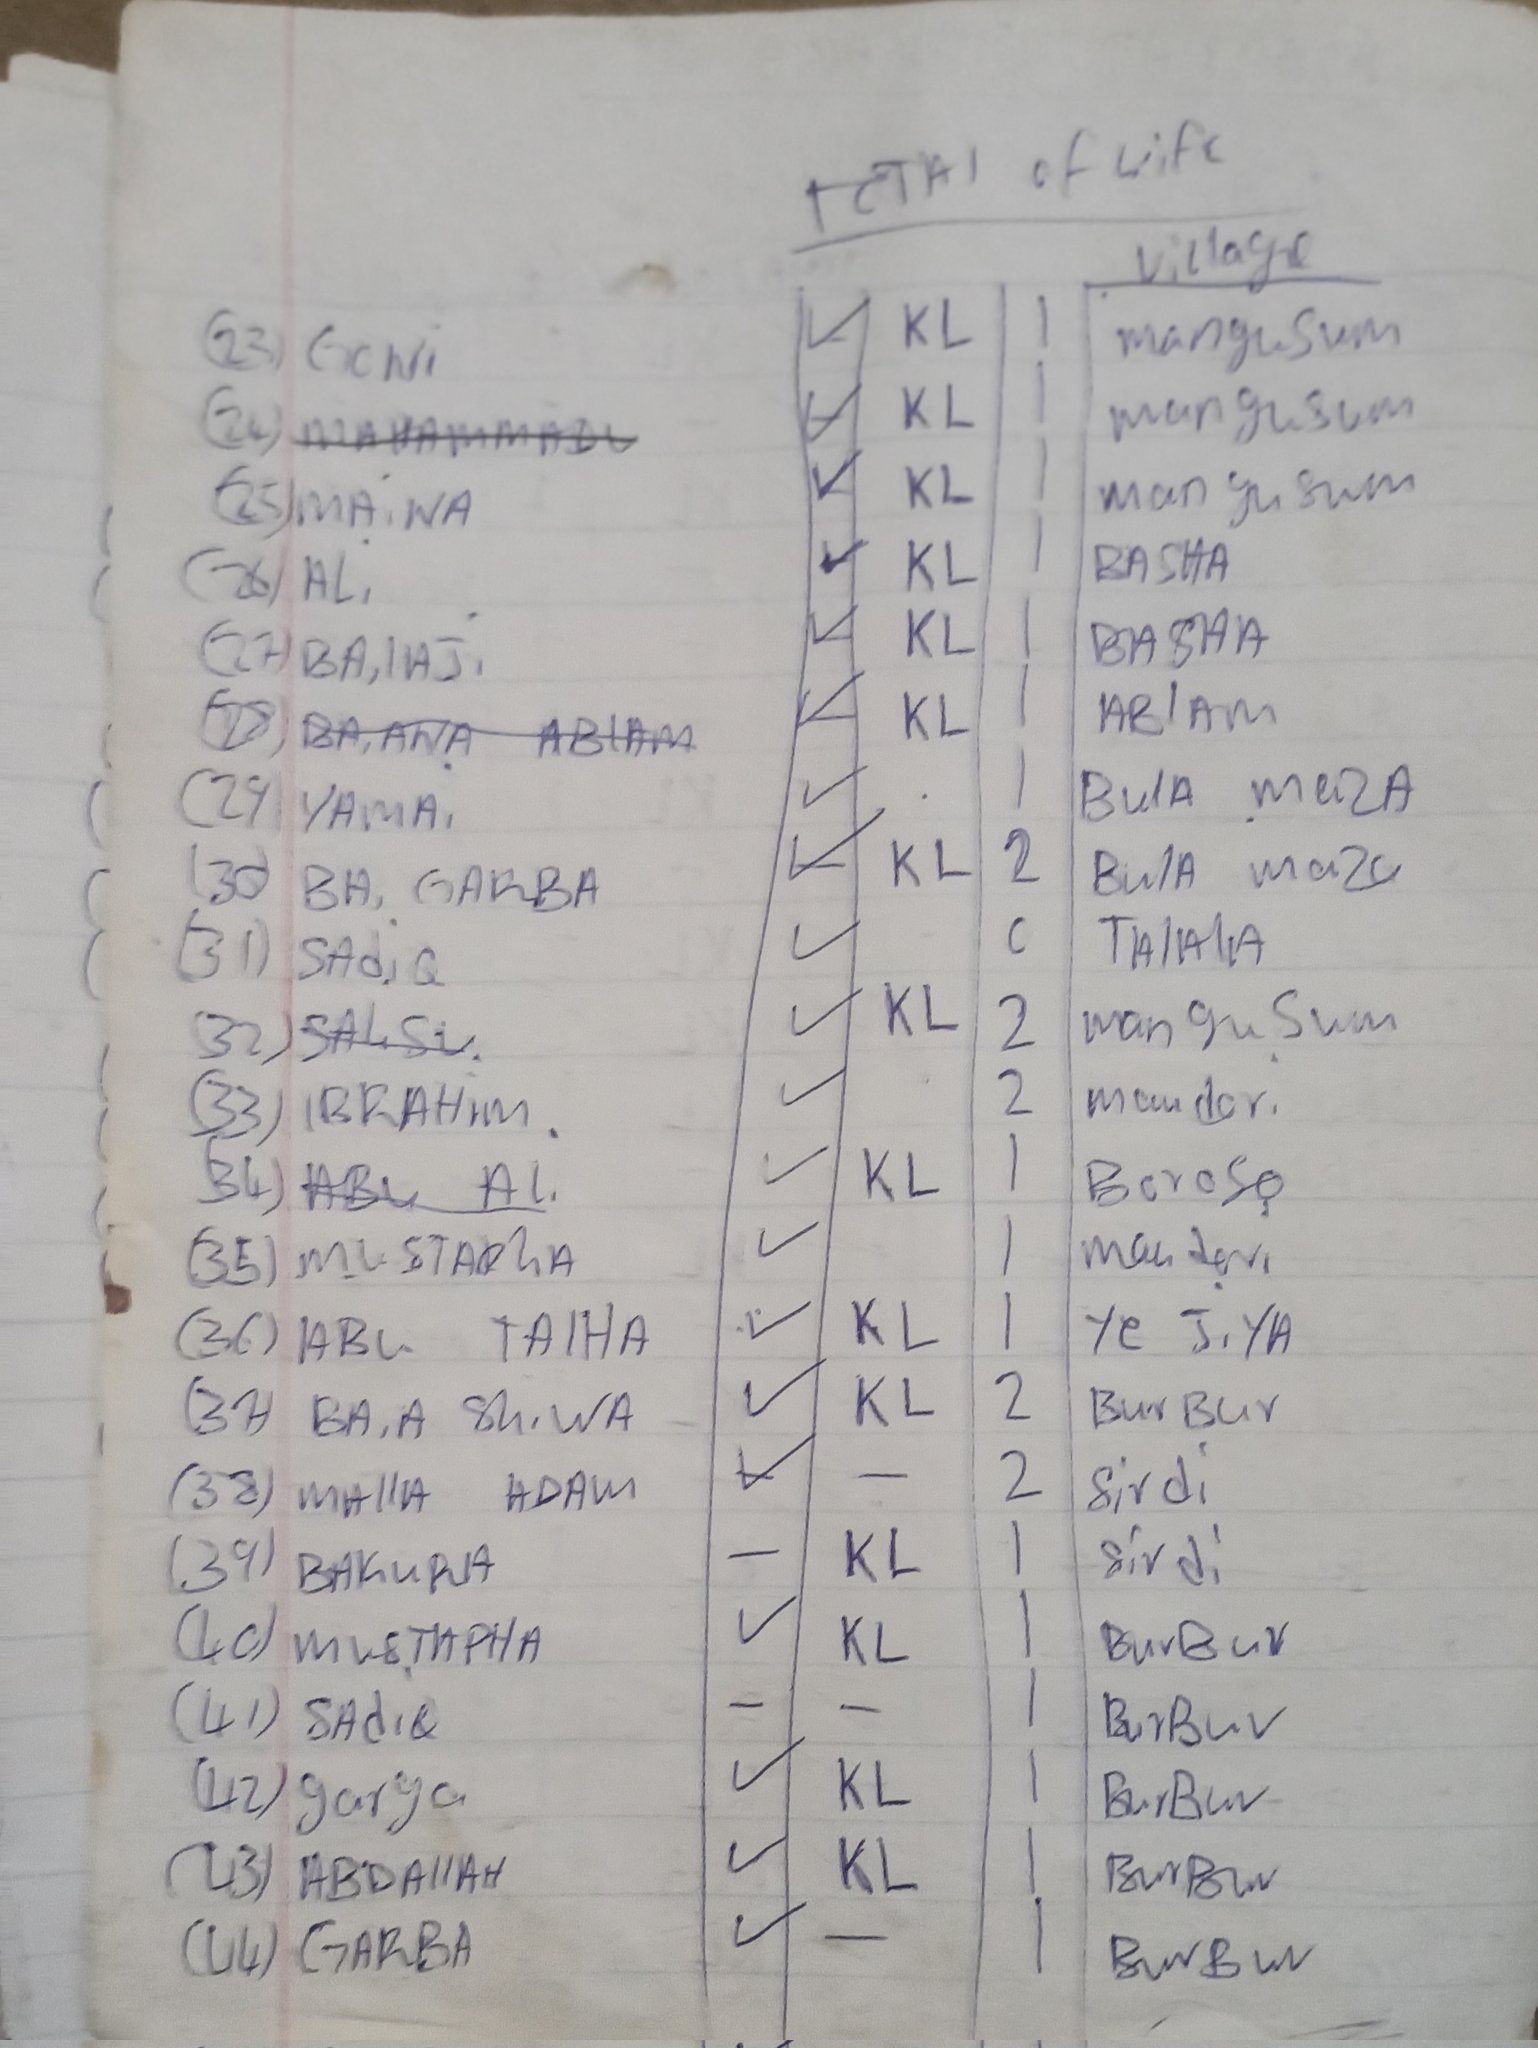 TOTAl of wife
Village
(23) GONi ✓ KL 1 mangusum
(24) MAHAMMADU ✓ KL 1 mangusum
(25) MA,NA ✓ KL 1 mangusum
(26) ALi ✓ KL 1 BASHA
(27) BA, lAJi ✓ KL 1 BASHA
(28) BA, ANA ABlAm ✓ KL 1 ABlAm
(29) YAMAi ✓ 1 BulA mazA
(30) BA, GARBA ✓ KL 2 BulA maza
(31) SAdiQ ✓ 0 TAlAlA
(32) SALSU. ✓ KL 2 mangusum
(33) IBRAHim. ✓ 2 mandari
(34) ABU Ali ✓ KL 1 Boroso
(35) MUSTAPhA ✓ 1 mandari
(36) ABU TAlHA ✓ KL 1 Ye JiYA
(37) BA,A ShiWA ✓ KL 2 BurBur
(38) MAllA ADAM ✓ — 2 Sirdi
(39) BAKURA — KL 1 Sirdi
(40) MUSTAPHA ✓ KL 1 BurBur
(41) SAdiQ — — 1 BurBur
(42) garga ✓ KL 1 BurBur
(43) ABDAllAH ✓ KL 1 BurBur
(44) GARBA ✓ — 1 BurBur